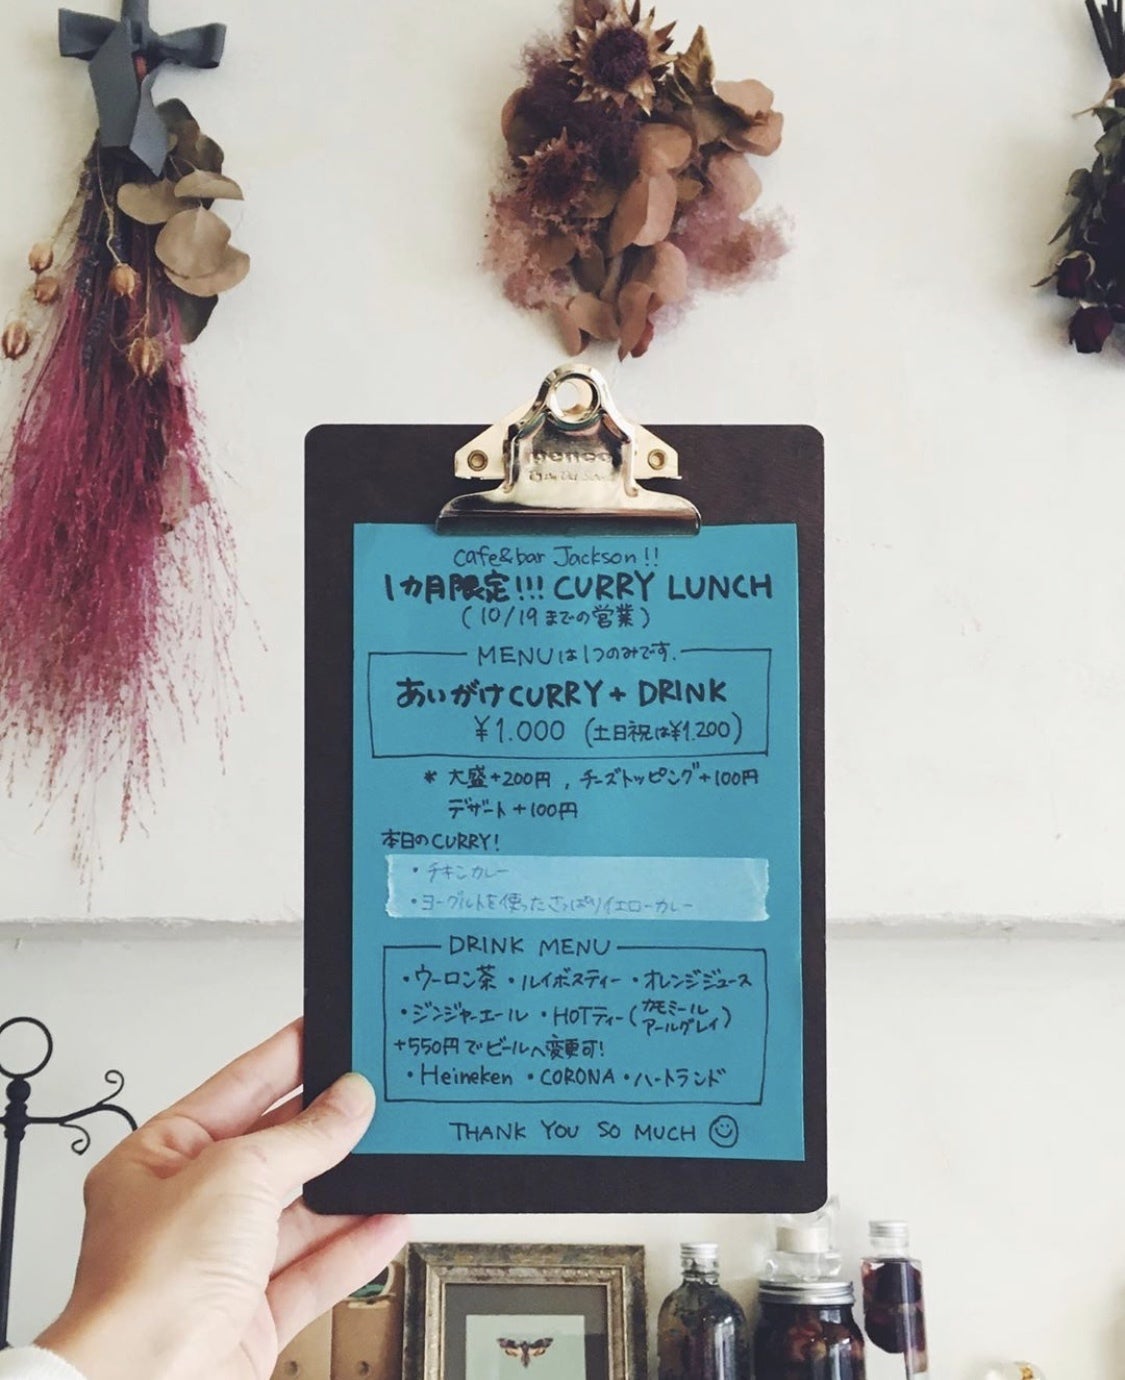 penco
cafe&bar Jackson!!
1カ月限定!!! CURRY LUNCH
(10/19までの営業)
MENUは1つのみです.
あいがけCURRY+DRINK
¥1.000 (土日祝は¥1.200)
* 大盛+200円, チーズトッピング+100円
デザート+100円
本日のCURRY!
・チキンカレー
・ヨーグルトを使ったさっぱりイエローカレー
DRINK MENU
・ウーロン茶 ・ルイボスティー ・オレンジジュース
・ジンジャーエール ・HOTティー(カモミール アールグレイ)
+550円でビールへ変更可!
・Heineken ・CORONA ・ハートランド
THANK YOU SO MUCH